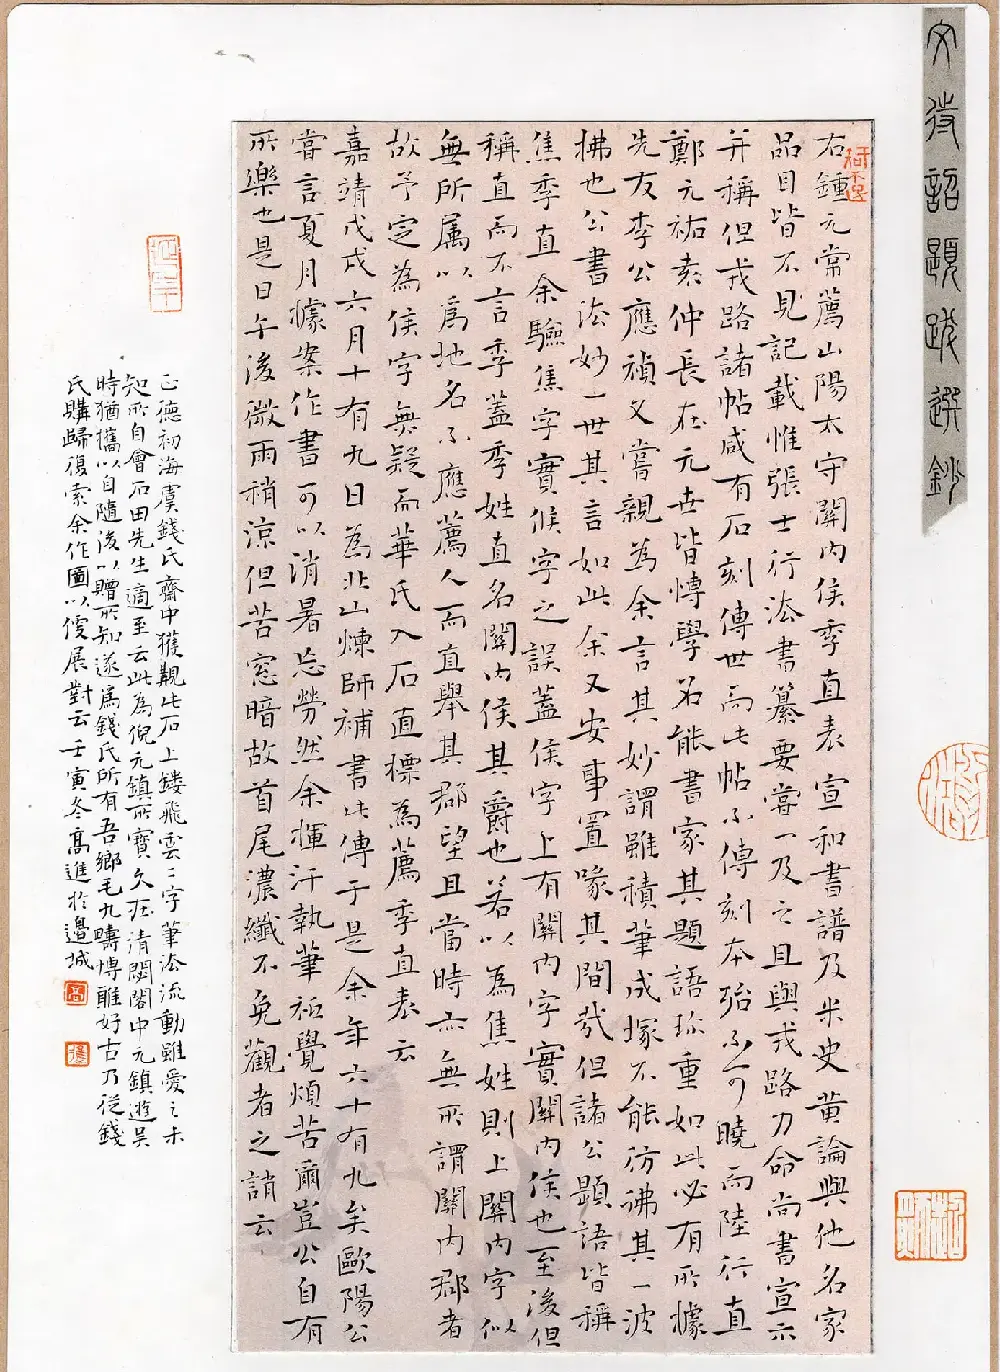 文待詔題跋選鈔
右鍾元常薦山陽太守關內侯季直表宣和書譜及米史黃論與他名家
品目皆不見記載惟張士行法書纂要嘗一及之且與戎路力命尚書宣示
并稱但戎路諸帖咸有石刻傳世而此帖不傳刻本殆不可曉而陸行直
鄭元祐袁仲長在元世皆博學名能書家其題語珍重如此必有所據
先友李公應禎又嘗親為余言其妙謂雖積筆成塚不能彷彿其一波
拂也公書法妙一世其言如此余又安事置喙其間哉但諸公題語皆稱
焦季直余驗焦字實候字之誤蓋侯字上有關內字實關內侯也至後但
稱直而不言季蓋季姓直名關內侯其爵也若以為焦姓則上關內字似
無所屬以為地名不應薦人而直舉其郡望且當時亦無所謂關內郡者
故予定為侯字無疑而華氏入石直標為薦季直表云
嘉靖戊戌六月十有九日為北山煉師補書此傳于是余年六十有九矣歐陽公
嘗言夏月據案作書可以消暑忘勞然余揮汗執筆祗覺煩苦爾豈公自有
所樂也是日午後微雨稍涼但苦窓暗故首尾濃纖不免觀者之誚云
正德初海虞錢氏齋中獲觀此石上鏤飛雲二字筆法流動雖愛之未
知所自會石田先生適至云此為倪元鎮所寶久在清閟閣中元鎮遊吳
時猶攜以自隨後以贈所知遂為錢氏所有吾鄉毛九疇博雅好古乃從錢
氏購歸復索余作圖以便展對云壬寅冬高進於邊城
高